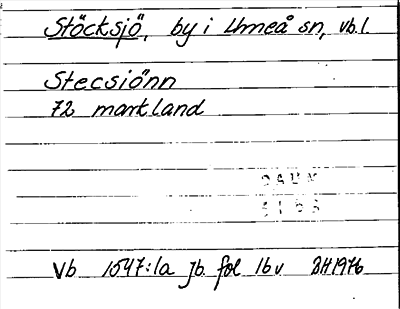 Stöcksjö, by i Umeå sn, vb.l.
Stecsiönn
72 markland
DAUM
3163
Vb 1547:1a jb. fol 16v BH1976